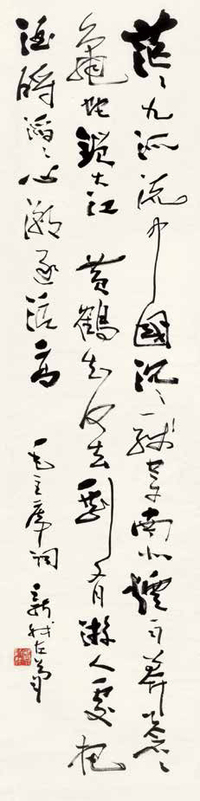 茫〻九派流中國沉〻一線穿南北煙雨莽蒼〻
龜蛇鎖大江 黃鶴知何去剩有游人處把
酒酹滔〻心潮逐浪高
毛主席詞 新我左筆